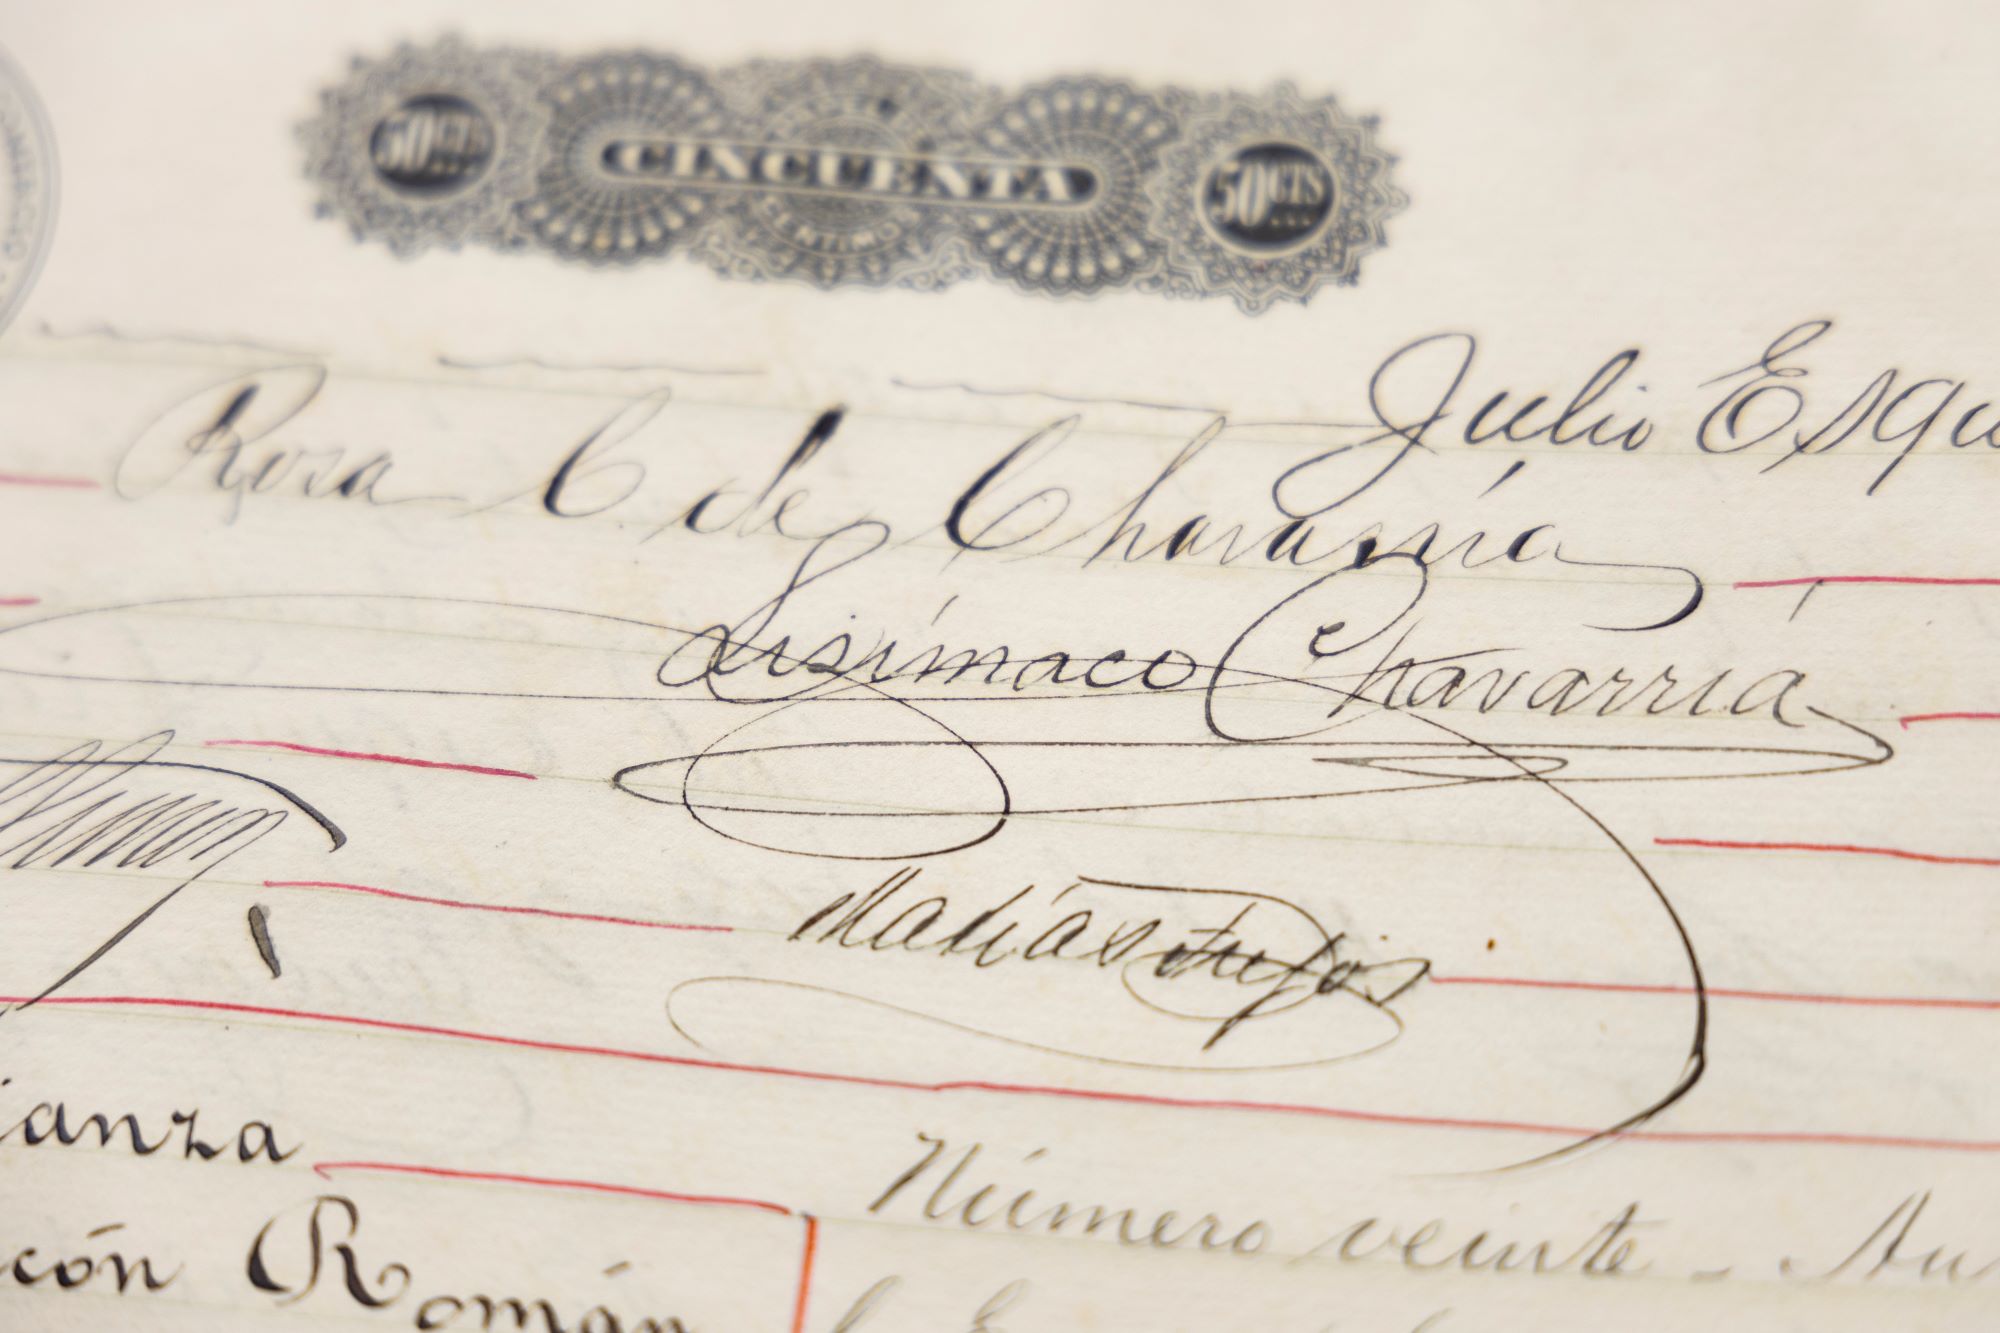 50 CTS CINCUENTA 50 CTS
CENTIMOS
Julio Esqu
Rosa C. de Chavarría
Lisímaco Chavarría
Matías Trejos
ianza
Número veinte - An
cón Román